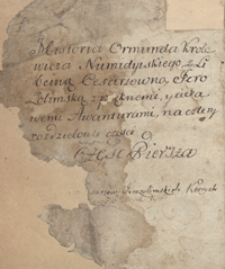 Historia Ormunda Krole
wica Numidyiskiego z Li
beiną Cesarzowną Jero
zolimską z pięknemi y cieka
wemi Awanturami, na cztery
rozdzielona części
Część Pierwsza